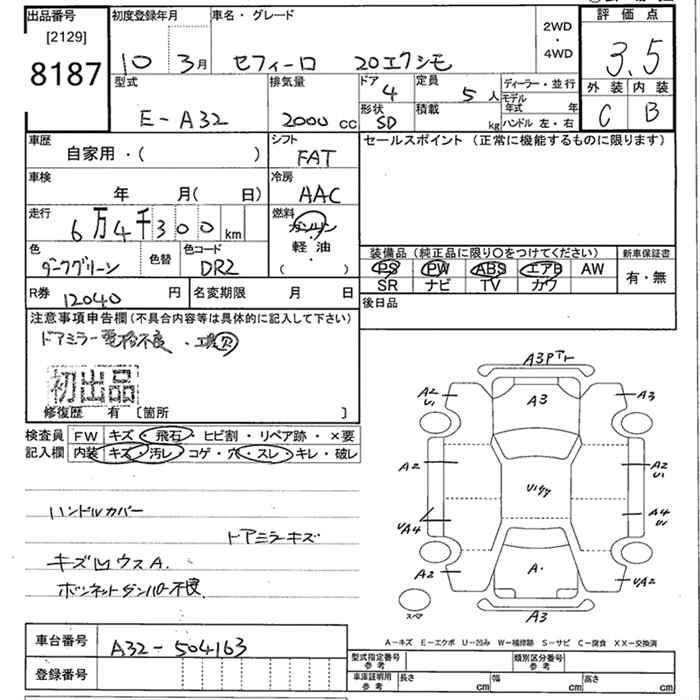 出品番号
[2129]
8187
初度登録年月
10 3月
車名・グレード
セフィーロ 20エクシモ
2WD
・
4WD
評価点
3.5
外装 内装
C B
型式
E-A32
排気量
2000 cc
ドア
4
定員
5 人
形状
SD
積載
kg
ディーラー・並行
モデル年式 年
ハンドル 左・右
車歴
自家用・( )
シフト
FAT
車検
年 月( 日)
冷房
AAC
走行
6万4千300 km
燃料
ガソリン
・
軽油
( )
色
ダークグリーン
色替
色コード
DR2
R券 12040 円
名変期限 月 日
セールスポイント (正常に機能するものに限ります)
装備品 (純正品に限り○をつけてください)
PS PW ABS エアB AW
SR ナビ TV カワ
新車保証書
有・無
後日品
注意事項申告欄(不具合内容等は具体的に記入して下さい)
ドアミラー電格不良・工具欠
初出品
修復歴 有 [箇所 ]
検査員記入欄
FW キズ・飛石・ヒビ割・リペア跡・×要
内装 キズ・汚レ・コゲ・穴・スレ・キレ・破レ
ハンドルカバー
ドアミラーキズ
キズ凹ウスA.
ボンネットダンパー不良.
A3Pテレ
A2
U1
A3
A3
A2
A2
U1
UA4
A4
U1
A2
A・
UA2
スペア
A3
A-キズ E-エクボ U-凹み W-補修跡 S-サビ C-腐食 XX-交換済
車台番号
A32-504163
登録番号
型式指定番号
参考
類別区分番号
参考
車庫証明用
参考
長さ cm 幅 cm 高さ cm